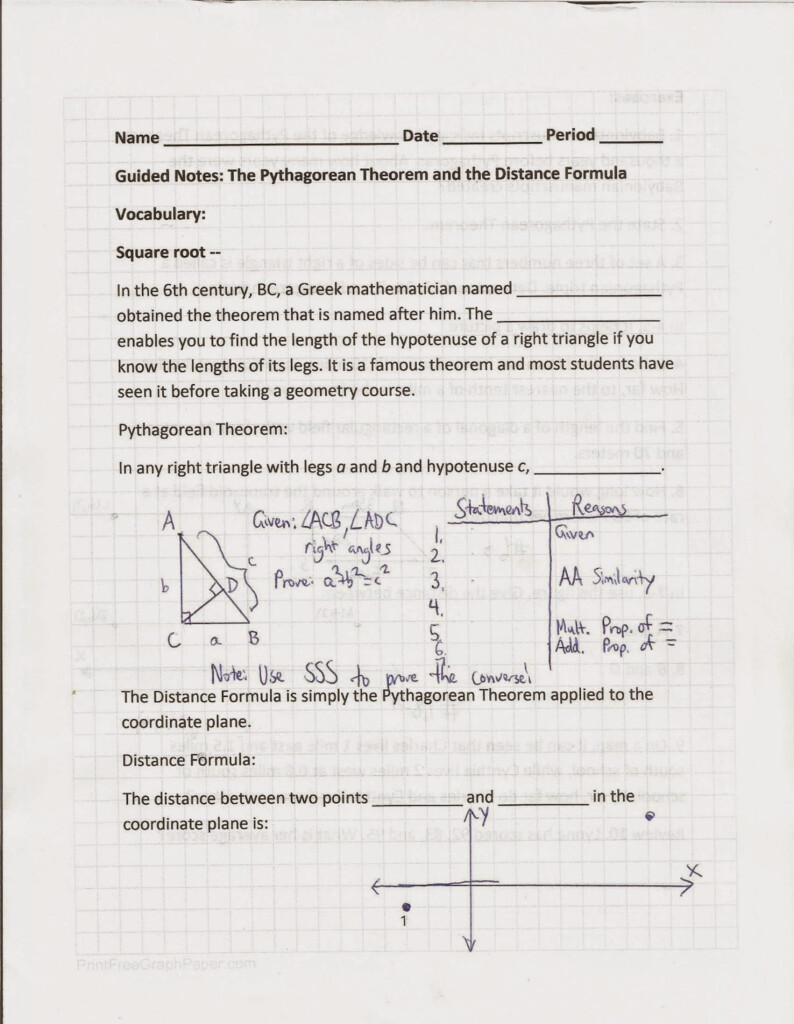 Name ____ Date ____ Period ____
Guided Notes: The Pythagorean Theorem and the Distance Formula
Vocabulary:
Square root --
In the 6th century, BC, a Greek mathematician named ____
obtained the theorem that is named after him. The ____
enables you to find the length of the hypotenuse of a right triangle if you
know the lengths of its legs. It is a famous theorem and most students have
seen it before taking a geometry course.
Pythagorean Theorem:
In any right triangle with legs a and b and hypotenuse c, ____.
A
b
C
a
B
D
c
Given: ∠ACB, ∠ADC
right angles
Prove: a²+b²=c²
Statements Reasons
1. Given
2.
3. AA Similarity
4.
5. Mult. Prop. of =
6. Add. Prop. of =
7.
Note: Use SSS to prove the converse!
The Distance Formula is simply the Pythagorean Theorem applied to the
coordinate plane.
Distance Formula:
The distance between two points ____ and ____ in the
coordinate plane is:
y
x
1
PrintFreeGraphPaper.com